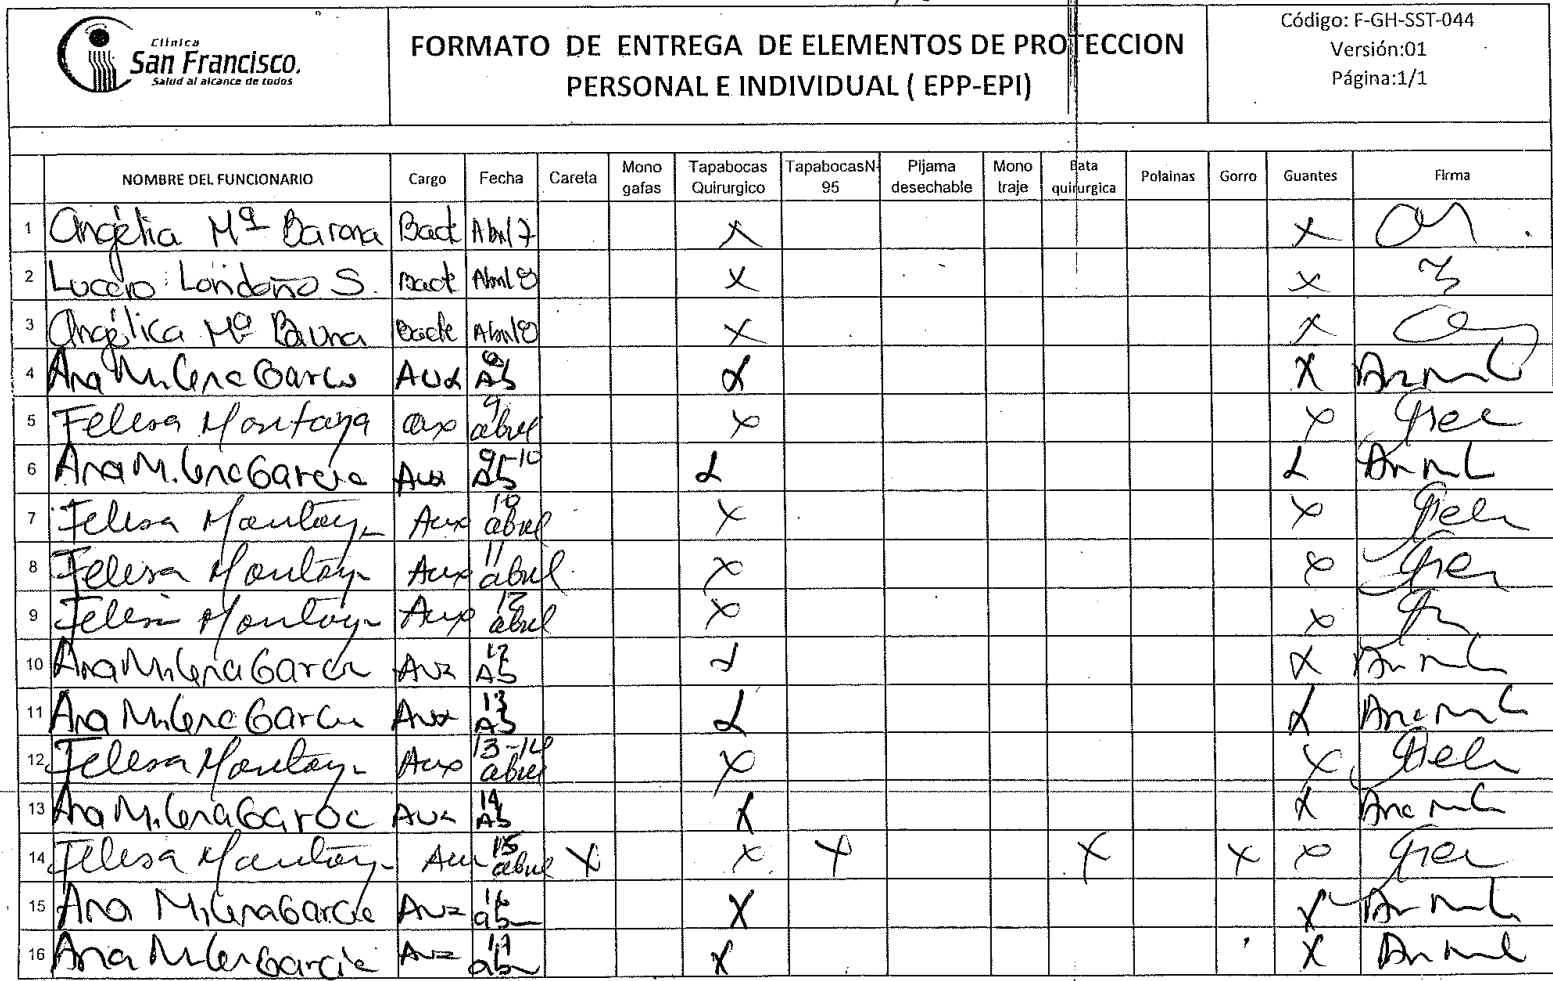 Clínica
San Francisco.
Salud al alcance de todos
FORMATO DE ENTREGA DE ELEMENTOS DE PROTECCION
PERSONAL E INDIVIDUAL ( EPP-EPI)
Código: F-GH-SST-044
Versión:01
Página:1/1
NOMBRE DEL FUNCIONARIO Cargo Fecha Careta Mono gafas Tapabocas Quirurgico TapabocasN-95 Pijama desechable Mono traje Bata quirurgica Polainas Gorro Guantes Firma
1 Angélia Mª Barona Bact Abril 7 X X
2 Lucero Londoño S. Bact Abril 8 X X
3 Angélica Mª Bact Abril 8 X X
4 Ana Milena Garcia Aux Ab X X
5 Felisa Montoya aux 9 abril X X
6 Ana Milena Garcia Aux 9-10 Ab X X
7 Felisa Montoya Aux 10 abril X X
8 Felisa Montoya Aux 11 abril X X
9 Felisa Montoya Aux 12 abril X X
10 Ana Milena Garcia Aux 12 Ab X X
11 Ana Milena Garcia Aux 13 Ab X X
12 Felisa Montoya Aux 13-14 abril X X
13 Ana Milena Garcia Aux 14 Ab X X
14 Felisa Montoya Aux 15 abril X X X X X X
15 Ana Milena Garcia Aux 16 ab X X
16 Ana Milena Garcia Aux ab X X